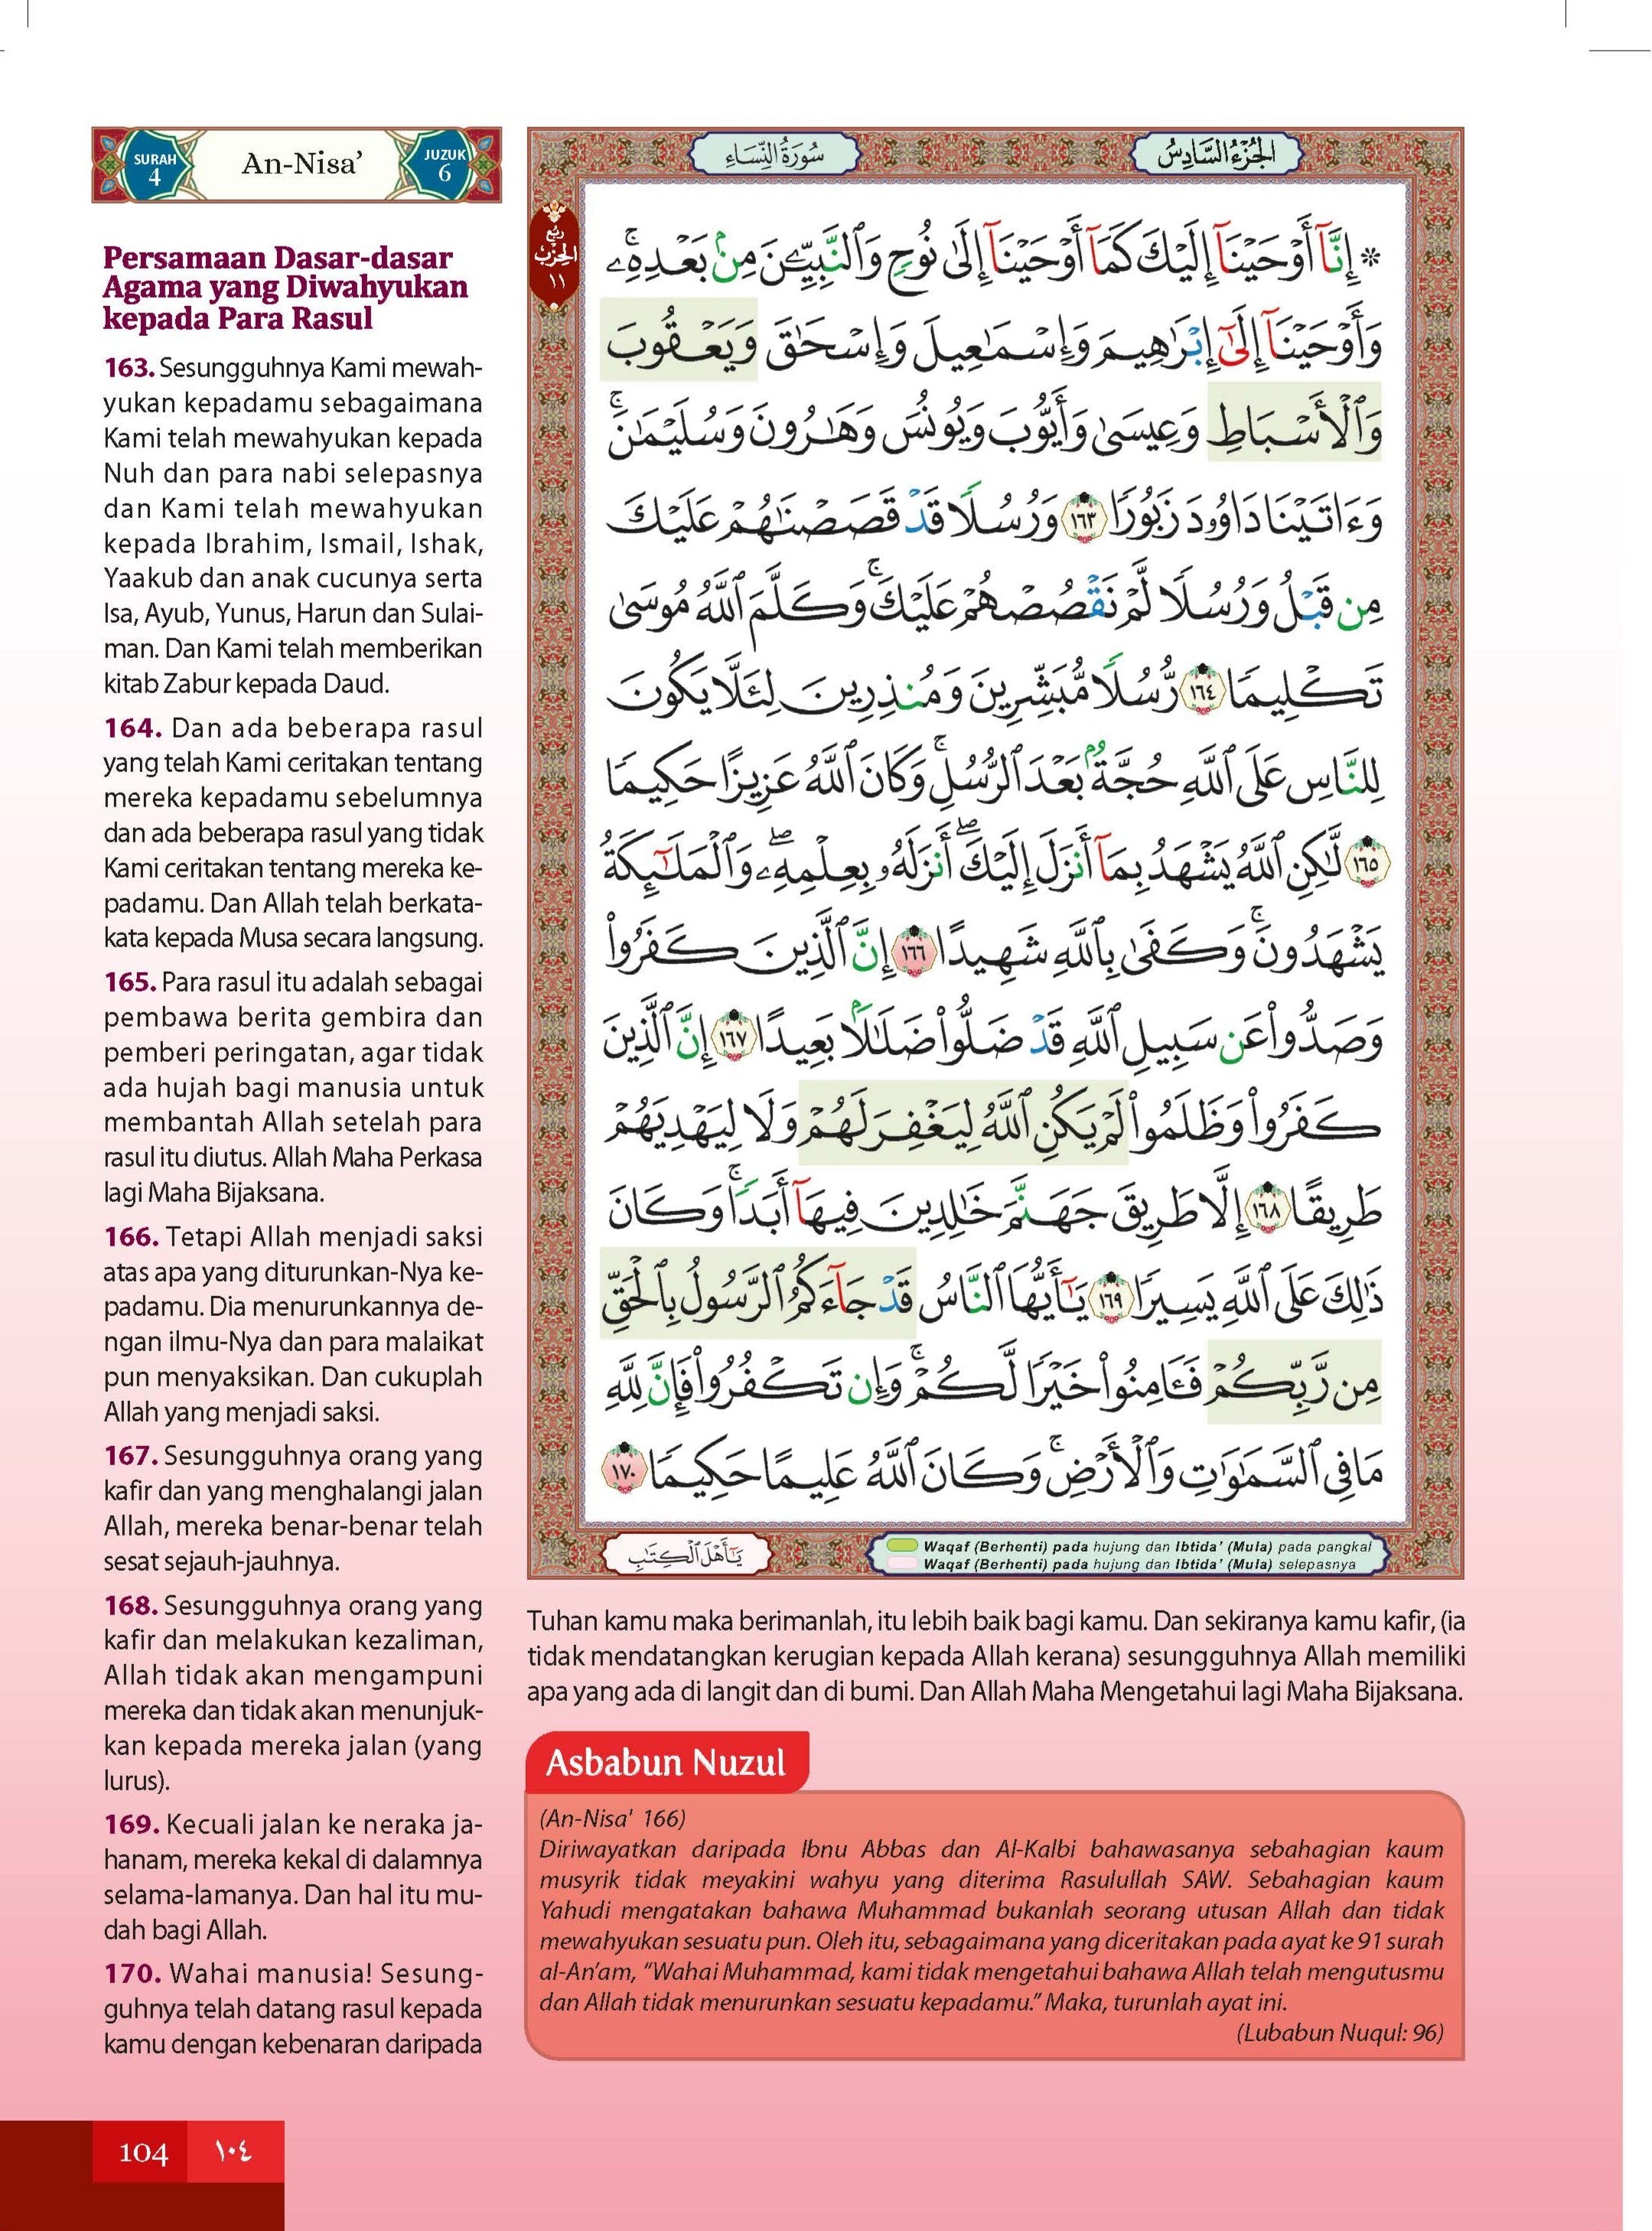 SURAH
4
An-Nisa’
JUZUK
6
Persamaan Dasar-dasar
Agama yang Diwahyukan
kepada Para Rasul
163. Sesungguhnya Kami mewah-
yukan kepadamu sebagaimana
Kami telah mewahyukan kepada
Nuh dan para nabi selepasnya
dan Kami telah mewahyukan
kepada Ibrahim, Ismail, Ishak,
Yaakub dan anak cucunya serta
Isa, Ayub, Yunus, Harun dan Sulai-
man. Dan Kami telah memberikan
kitab Zabur kepada Daud.
164. Dan ada beberapa rasul
yang telah Kami ceritakan tentang
mereka kepadamu sebelumnya
dan ada beberapa rasul yang tidak
Kami ceritakan tentang mereka ke-
padamu. Dan Allah telah berkata-
kata kepada Musa secara langsung.
165. Para rasul itu adalah sebagai
pembawa berita gembira dan
pemberi peringatan, agar tidak
ada hujah bagi manusia untuk
membantah Allah setelah para
rasul itu diutus. Allah Maha Perkasa
lagi Maha Bijaksana.
166. Tetapi Allah menjadi saksi
atas apa yang diturunkan-Nya ke-
padamu. Dia menurunkannya de-
ngan ilmu-Nya dan para malaikat
pun menyaksikan. Dan cukuplah
Allah yang menjadi saksi.
167. Sesungguhnya orang yang
kafir dan yang menghalangi jalan
Allah, mereka benar-benar telah
sesat sejauh-jauhnya.
168. Sesungguhnya orang yang
kafir dan melakukan kezaliman,
Allah tidak akan mengampuni
mereka dan tidak akan menunjuk-
kan kepada mereka jalan (yang
lurus).
169. Kecuali jalan ke neraka ja-
hanam, mereka kekal di dalamnya
selama-lamanya. Dan hal itu mu-
dah bagi Allah.
170. Wahai manusia! Sesung-
guhnya telah datang rasul kepada
kamu dengan kebenaran daripada
الجُزْءُ السَّادِسُ
سُورَةُ النِّسَاءِ
ربع
الحزب
١١
* إِنَّآ أَوْحَيْنَآ إِلَيْكَ كَمَآ أَوْحَيْنَآ إِلَىٰ نُوحٍ وَٱلنَّبِيِّـۧنَ مِنۢ بَعْدِهِۦۚ
وَأَوْحَيْنَآ إِلَىٰٓ إِبْرَٰهِيمَ وَإِسْمَٰعِيلَ وَإِسْحَٰقَ وَيَعْقُوبَ
وَٱلْأَسْبَاطِ وَعِيسَىٰ وَأَيُّوبَ وَيُونُسَ وَهَٰرُونَ وَسُلَيْمَٰنَۚ
وَءَاتَيْنَا دَاوُۥدَ زَبُورًا ١٦٣ وَرُسُلًا قَدْ قَصَصْنَٰهُمْ عَلَيْكَ
مِن قَبْلُ وَرُسُلًا لَّمْ نَقْصُصْهُمْ عَلَيْكَۚ وَكَلَّمَ ٱللَّهُ مُوسَىٰ
تَكْلِيمًا ١٦٤ رُّسُلًا مُّبَشِّرِينَ وَمُنذِرِينَ لِئَلَّا يَكُونَ
لِلنَّاسِ عَلَى ٱللَّهِ حُجَّةٌۢ بَعْدَ ٱلرُّسُلِۚ وَكَانَ ٱللَّهُ عَزِيزًا حَكِيمًا
١٦٥ لَّٰكِنِ ٱللَّهُ يَشْهَدُ بِمَآ أَنزَلَ إِلَيْكَۖ أَنزَلَهُۥ بِعِلْمِهِۦۖ وَٱلْمَلَٰٓئِكَةُ
يَشْهَدُونَۚ وَكَفَىٰ بِٱللَّهِ شَهِيدًا ١٦٦ إِنَّ ٱلَّذِينَ كَفَرُوا۟
وَصَدُّوا۟ عَن سَبِيلِ ٱللَّهِ قَدْ ضَلُّوا۟ ضَلَٰلًۢا بَعِيدًا ١٦٧ إِنَّ ٱلَّذِينَ
كَفَرُوا۟ وَظَلَمُوا۟ لَمْ يَكُنِ ٱللَّهُ لِيَغْفِرَ لَهُمْ وَلَا لِيَهْدِيَهُمْ
طَرِيقًا ١٦٨ إِلَّا طَرِيقَ جَهَنَّمَ خَٰلِدِينَ فِيهَآ أَبَدًاۚ وَكَانَ
ذَٰلِكَ عَلَى ٱللَّهِ يَسِيرًا ١٦٩ يَٰٓأَيُّهَا ٱلنَّاسُ قَدْ جَآءَكُمُ ٱلرَّسُولُ بِٱلْحَقِّ
مِن رَّبِّكُمْ فَـَٔامِنُوا۟ خَيْرًا لَّكُمْۚ وَإِن تَكْفُرُوا۟ فَإِنَّ لِلَّهِ
مَا فِى ٱلسَّمَٰوَٰتِ وَٱلْأَرْضِۚ وَكَانَ ٱللَّهُ عَلِيمًا حَكِيمًا ١٧٠
يَٰٓأَهْلَ ٱلْكِتَٰبِ
Waqaf (Berhenti) pada hujung dan Ibtida’ (Mula) pada pangkal
Waqaf (Berhenti) pada hujung dan Ibtida’ (Mula) selepasnya
Tuhan kamu maka berimanlah, itu lebih baik bagi kamu. Dan sekiranya kamu kafir, (ia
tidak mendatangkan kerugian kepada Allah kerana) sesungguhnya Allah memiliki
apa yang ada di langit dan di bumi. Dan Allah Maha Mengetahui lagi Maha Bijaksana.
Asbabun Nuzul
(An-Nisa' 166)
Diriwayatkan daripada Ibnu Abbas dan Al-Kalbi bahawasanya sebahagian kaum
musyrik tidak meyakini wahyu yang diterima Rasulullah SAW. Sebahagian kaum
Yahudi mengatakan bahawa Muhammad bukanlah seorang utusan Allah dan tidak
mewahyukan sesuatu pun. Oleh itu, sebagaimana yang diceritakan pada ayat ke 91 surah
al-An’am, “Wahai Muhammad, kami tidak mengetahui bahawa Allah telah mengutusmu
dan Allah tidak menurunkan sesuatu kepadamu.” Maka, turunlah ayat ini.
(Lubabun Nuqul: 96)
104
١٠٤